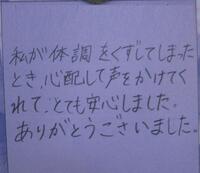 私が体調をくずしてしまった
とき、心配して声をかけてく
れて、とても安心しました。
ありがとうございました。